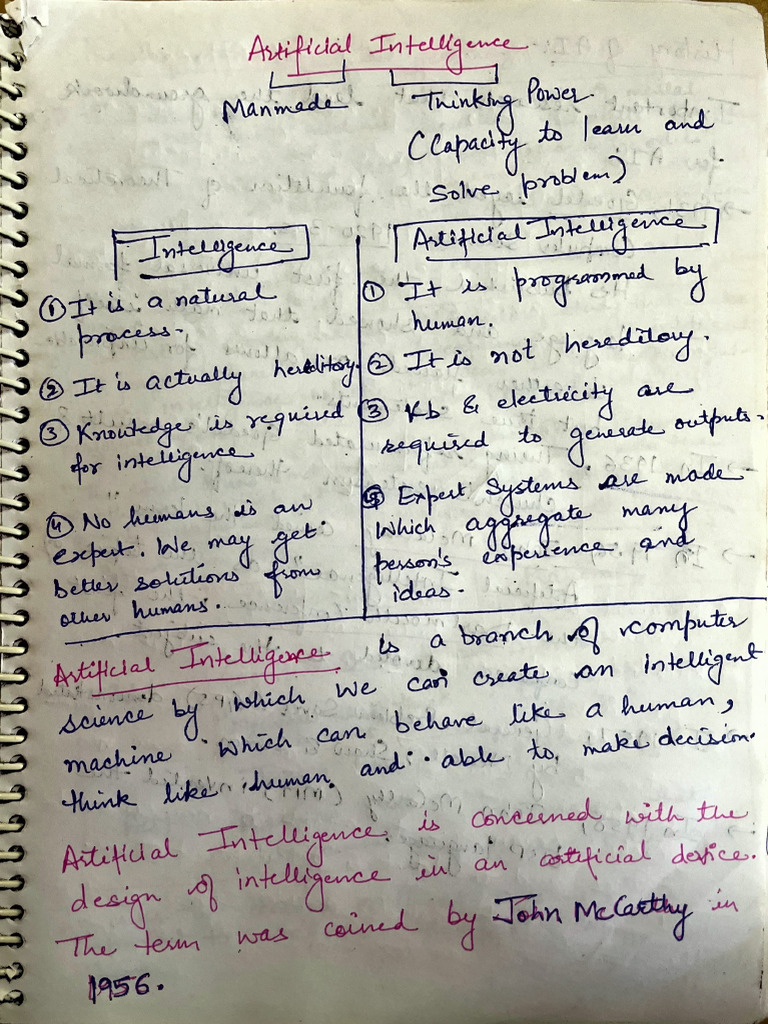 Artificial Intelligence
Manmade
Thinking Power.
(Capacity to learn and
solve problem)
Intelligence
① It is a natural
process.
② It is actually hereditory.
③ Knowledge is required
for intelligence
④ No humans is an
expert. We may get
better solutions from
other humans.
Artificial Intelligence
① It is programmed by
human.
② It is not hereditory.
③ Kb & electricity are
required to generate outputs.
Expert Systems are made
Which aggregate many
person's experience and
ideas.
Artificial Intelligence is a branch of computer
science by which we can create an intelligent
machine which can behave like a human,
think like human and able to make decision.
Artificial Intelligence is concerned with the
design of intelligence in an artificial device.
The term was coined by John McCarthy in
1956.